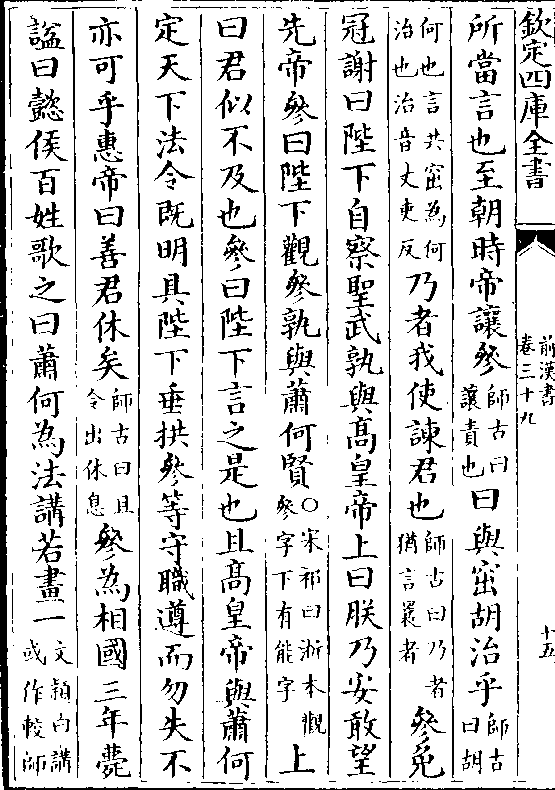 欽定四庫全書
前漢書
卷三十九
十五
所當言也至朝時帝讓參師古曰讓責也曰與窋胡治乎師古曰胡
何也言共窋為何治也治音丈吏反乃者我使諫君也師古曰乃者猶言曩者參免
冠謝曰陛下自察聖武孰與髙皇帝上曰朕乃安敢望
先帝參曰陛下觀參孰與蕭何賢○宋祁曰浙本觀參字下有能字上
曰君似不及也參曰陛下言之是也且髙皇帝與蕭何
定天下法令既明具陛下垂拱參等守職遵而勿失不
亦可乎惠帝曰善君休矣師古曰且令出休息參為相國三年薨
諡曰懿侯百姓歌之曰蕭何為法講若畫一文頴曰講或作較師